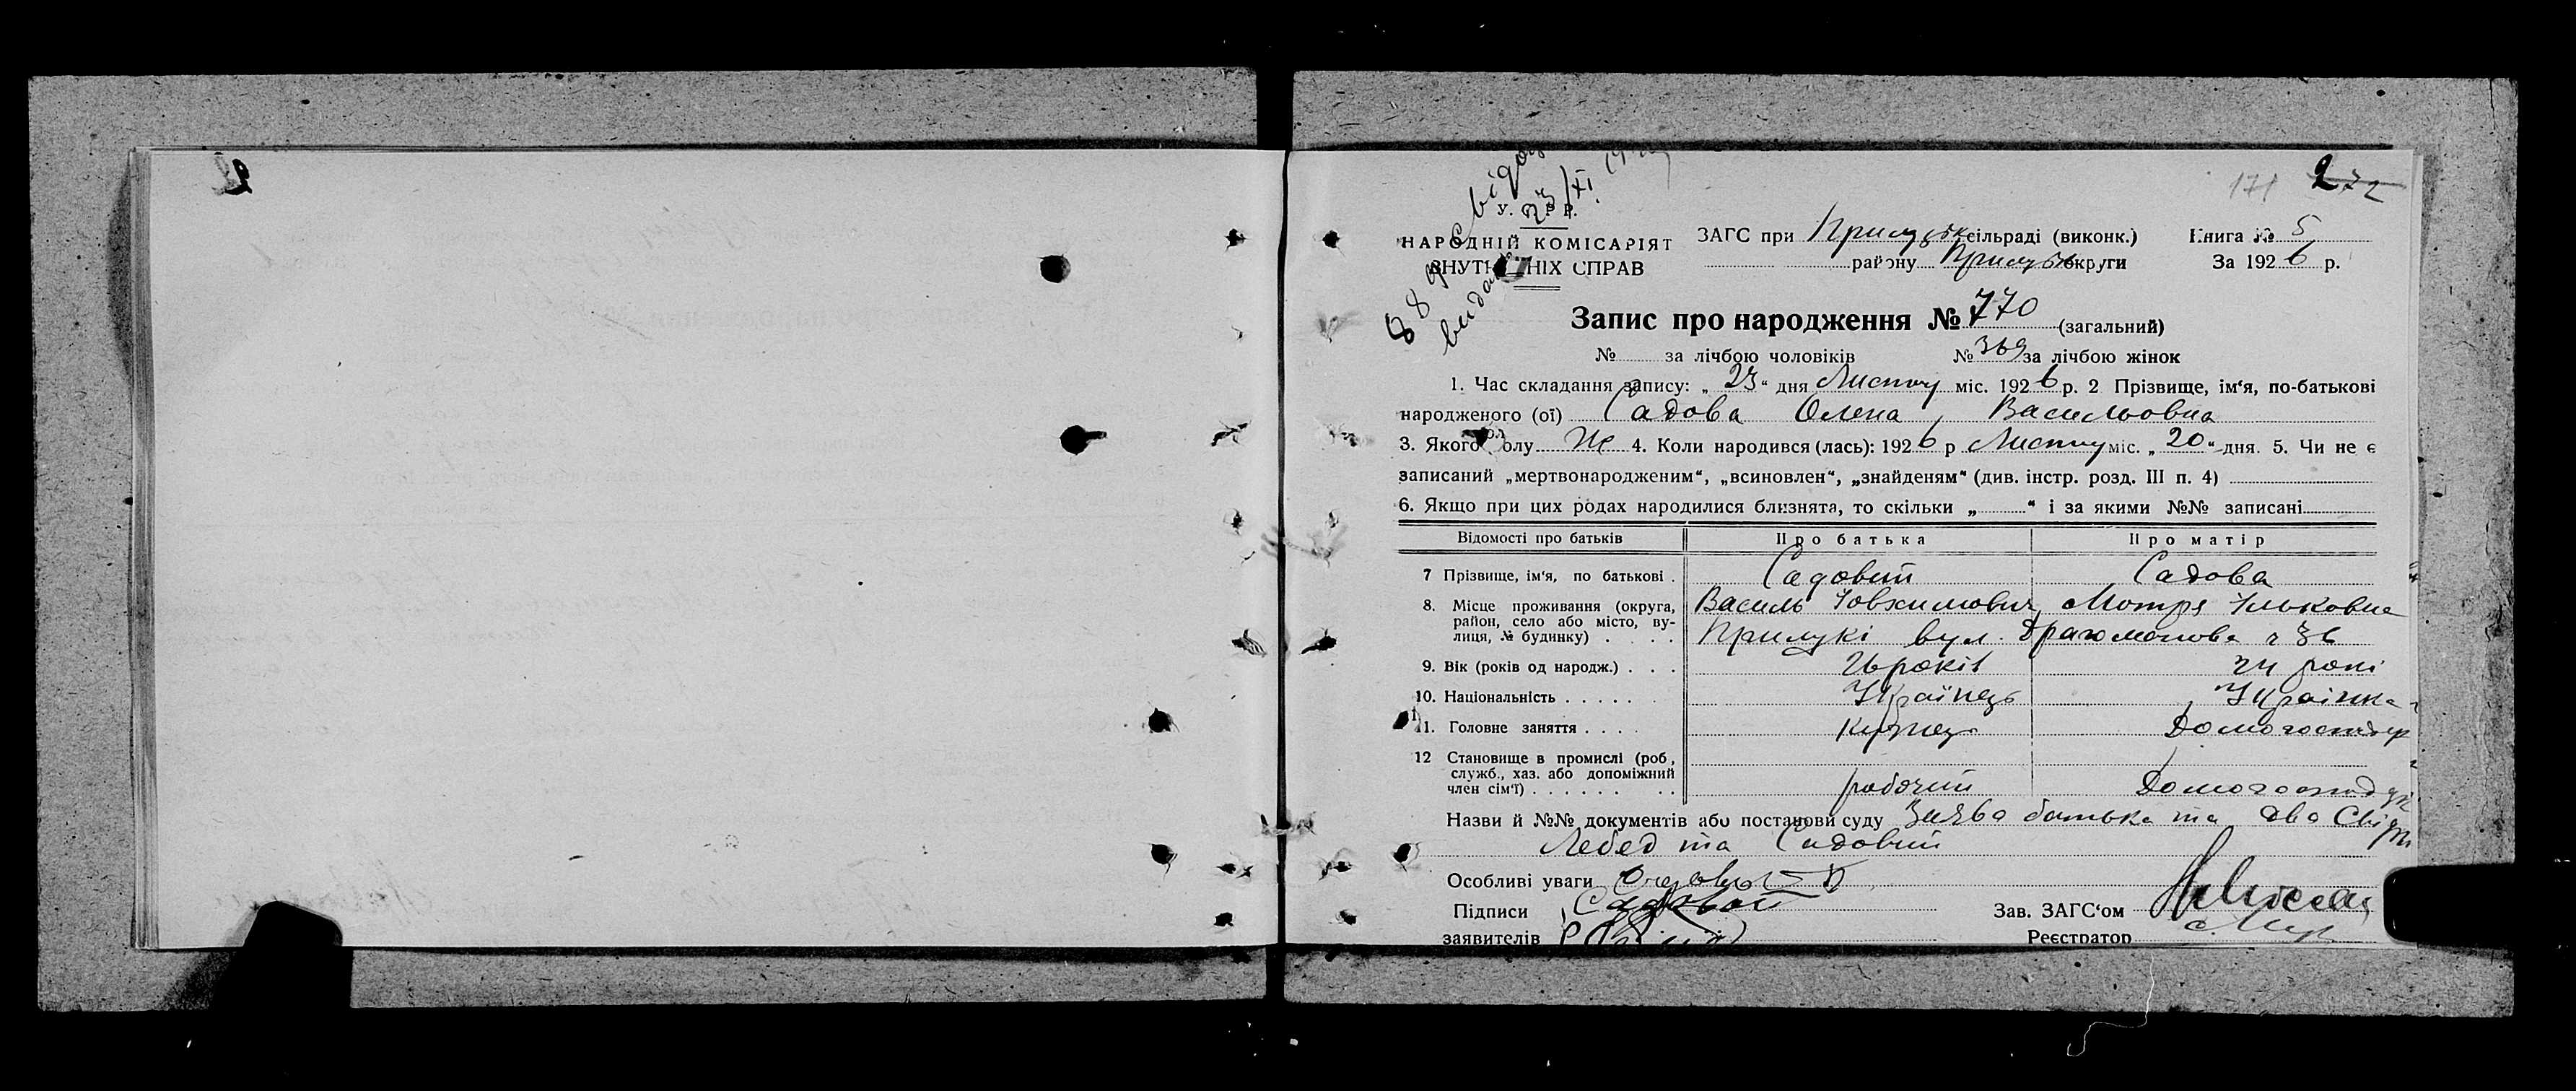 171 272
2
У. С. Р. Р.
НАРОДНІЙ КОМІСАРІЯТ
ВНУТРІШНІХ СПРАВ
ЗАГС при Прилуцьк сільраді (виконк.) Книга № 5
району Прилуцьк округи За 1926 р.
Запис про народження № 770 (загальний)
№ за лічбою чоловіків № 369 за лічбою жінок
1. Час складання запису: „ 23 “ дня Листоп міс. 1926 р. 2 Прізвище, ім‘я, по-батькові
народженого (ої) Садова Олена Васильовна
3. Якого полу Ж 4. Коли народився (лась): 1926 р Листоп міс. „ 20 “ дня. 5. Чи не є
записаний „мертвонародженим“, „всиновлен“, „знайденям“ (див. інстр. розд. III п. 4)
6. Якщо при цих родах народилися близнята, то скільки „ “ і за якими №№ записані
Відомості про батьків Про батька Про матір
7 Прізвище, ім‘я, по батькові . Садовий Садова
8. Місце проживання (округа, Василь Йовхимович, Мотря Ільковна
район, село або місто, ву-
лиця, № будинку) . . . . Прилукі вул. Драгоманова ч 36
9. Вік (років од народж.) . . . 26 років 24 роки
10. Національність . . . . . Українець Українка
11. Головне заняття . . . . Кузнець Домогосподар
12 Становище в промислі (роб,
служб., хаз. або допоміжний
член сім‘ї) . . . . . . . . робочий Домогосподар
Назви й №№ документів або постанови суду Заява батька та два Свідки
Лебед та Садовий
Особливі уваги
Підписи Садовой Зав. ЗАГС‘ом
заявителів Реєстратор